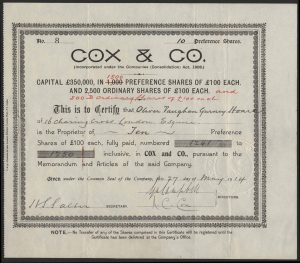 No. 8 10 Preference Shares.
COX & CO.
(Incorporated under the Companies (Consolidation) Act, 1908.)
1500
CAPITAL £350,000, IN 1,000 PREFERENCE SHARES OF £100 EACH,
AND 2,500 ORDINARY SHARES OF £100 EACH.
and
Ordinary Shares of £100 each
This is to Certify that Oliver Vaughan Gurney Hoare
of 16 Charing Cross London
is the Proprietor of Ten Preference
Shares of £100 each, fully paid, numbered 1241 to
1250 inclusive, in COX AND CO., pursuant to the
Memorandum and Articles of the said Company.
Given under the Common Seal of the Company, the 27 day of May 1914
DIRECTORS
SECRETARY.
NOTE.—No Transfer of any of the Shares comprised in this Certificate will be registered until the
Certificate has been delivered at the Company's Office.